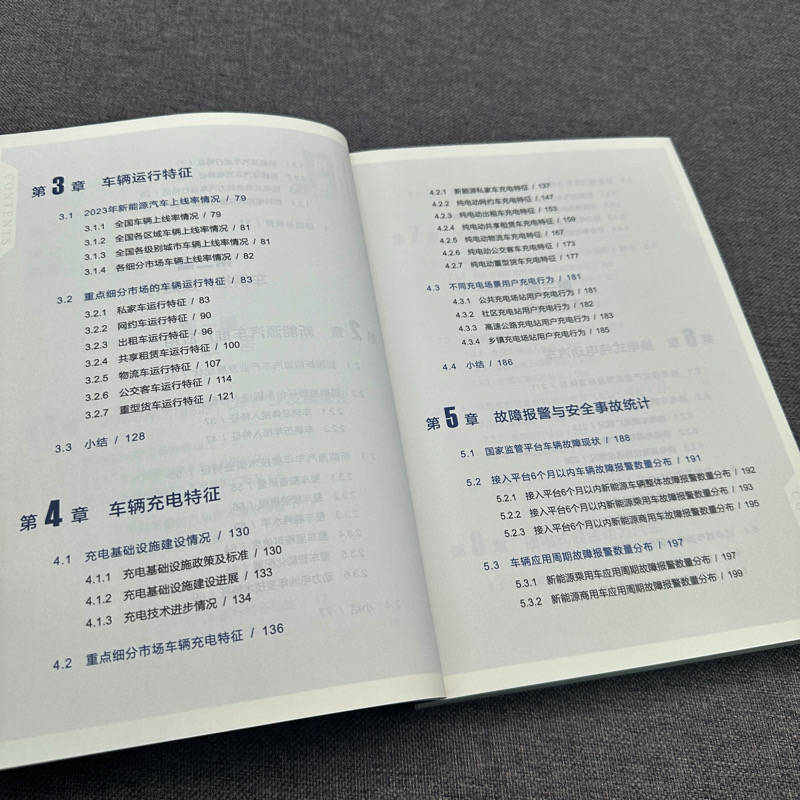 CONTENTS
第3章 车辆运行特征
3.1 2023年新能源汽车上线率情况 / 79
3.1.1 全国车辆上线率情况 / 79
3.1.2 全国各区域车辆上线率情况 / 81
3.1.3 全国各级别城市车辆上线率情况 / 81
3.1.4 各细分市场车辆上线率情况 / 82
3.2 重点细分市场的车辆运行特征 / 83
3.2.1 私家车运行特征 / 83
3.2.2 网约车运行特征 / 90
3.2.3 出租车运行特征 / 96
3.2.4 共享租赁车运行特征 / 100
3.2.5 物流车运行特征 / 107
3.2.6 公交客车运行特征 / 114
3.2.7 重型货车运行特征 / 121
3.3 小结 / 128
第4章 车辆充电特征
4.1 充电基础设施建设情况 / 130
4.1.1 充电基础设施政策及标准 / 130
4.1.2 充电基础设施建设进展 / 133
4.1.3 充电技术进步情况 / 134
4.2 重点细分市场车辆充电特征 / 136
4.2.1 新能源私家车充电特征 / 137
4.2.2 纯电动网约车充电特征 / 147
4.2.3 纯电动出租车充电特征 / 153
4.2.4 纯电动共享租赁车充电特征 / 159
4.2.5 纯电动物流车充电特征 / 167
4.2.6 纯电动公交客车充电特征 / 173
4.2.7 纯电动重型货车充电特征 / 177
4.3 不同充电场景用户充电行为 / 181
4.3.1 公共充电场站用户充电行为 / 181
4.3.2 社区充电站用户充电行为 / 182
4.3.3 高速公路充电站用户充电行为 / 183
4.3.4 乡镇充电场站用户充电行为 / 185
4.4 小结 / 186
第5章 故障报警与安全事故统计
5.1 国家监管平台车辆故障现状 / 188
5.2 接入平台6个月以内车辆故障报警数量分布 / 191
5.2.1 接入平台6个月以内新能源车辆整体故障报警数量分布 / 192
5.2.2 接入平台6个月以内新能源乘用车故障报警数量分布 / 193
5.2.3 接入平台6个月以内新能源商用车故障报警数量分布 / 195
5.3 车辆应用周期故障报警数量分布 / 197
5.3.1 新能源乘用车应用周期故障报警数量分布 / 197
5.3.2 新能源商用车应用周期故障报警数量分布 / 199